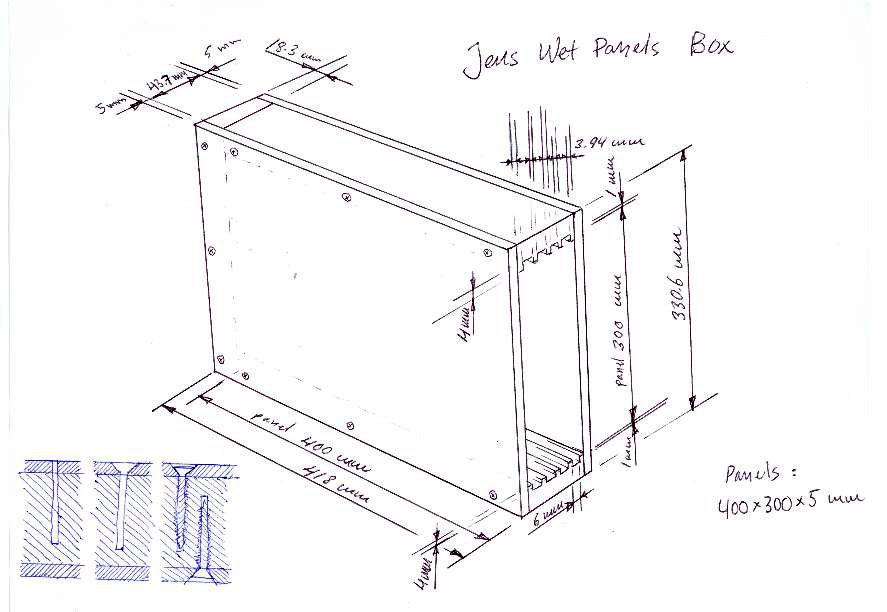 Jens Wet Panels Box
5 mm
43.7 mm
5 mm
18.3 mm
3.94 mm
1 mm
330.6 mm
panel 300 mm
4 mm
1 mm
panel 400 mm
418 mm
6 mm
4 mm
Panels :
400×300×5 mm